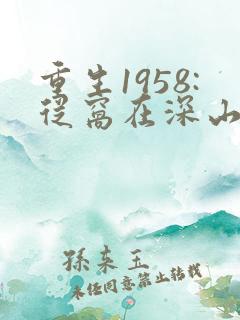 重生1958:
从窝在深山
孫来玉
未经同意禁止转载